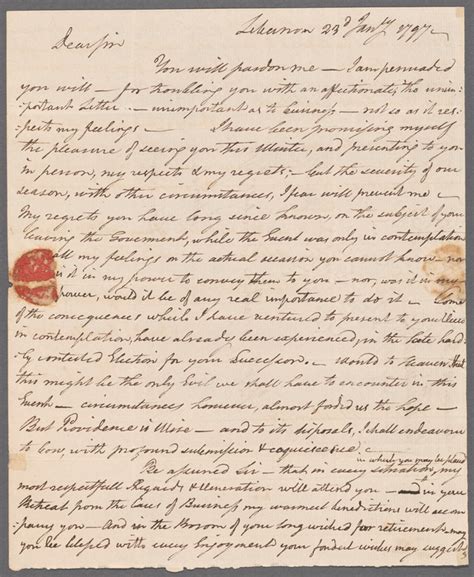 Lebanon 23d Jany 1797 –
Dear sir
You will pardon me – I am persuaded
you will – for troubling you with an affectionate, tho unim=
=portant Letter – unimportant as to business – not so as it res=
=pects my feelings – I have been promising myself
the pleasure of seeing you this Winter, and presenting to you
in person, my respects & my regrets – but the severity of our
season, with other circumstances, I fear will prevent me –
My regrets you have long since known, on the subject of your
leaving the Goverment, while the Event was only in contemplation
all my feelings on the actual occasion you cannot know – nor
is it in my power to convey them to you – nor, was it in my
power, would it be of any real importance to do it – Some
of the consequences which I have ventured to present to your View
in contemplation, have already been experienced, in the late hard=
=ly contested Election for your Successor – Would to Heaven that
this might be the only Evil we shall have to encounter in this
Event – circumstances however, almost forbid us the hope –
But Providence is Wise – and to its disposals, I shall endeavour
to bow, with profound submission & acquiescence –
in which you may be placed
Be assured Sir – that in every situation, my
most respectfull Regards & Veneration will attend you – and in your
Retreat from the Cares of Business my warmest benedictions will accom=
pany you – And in the Bosom of your long wished for retirement – may
you be blessed with every Enjoyment your fondest wishes may suggest